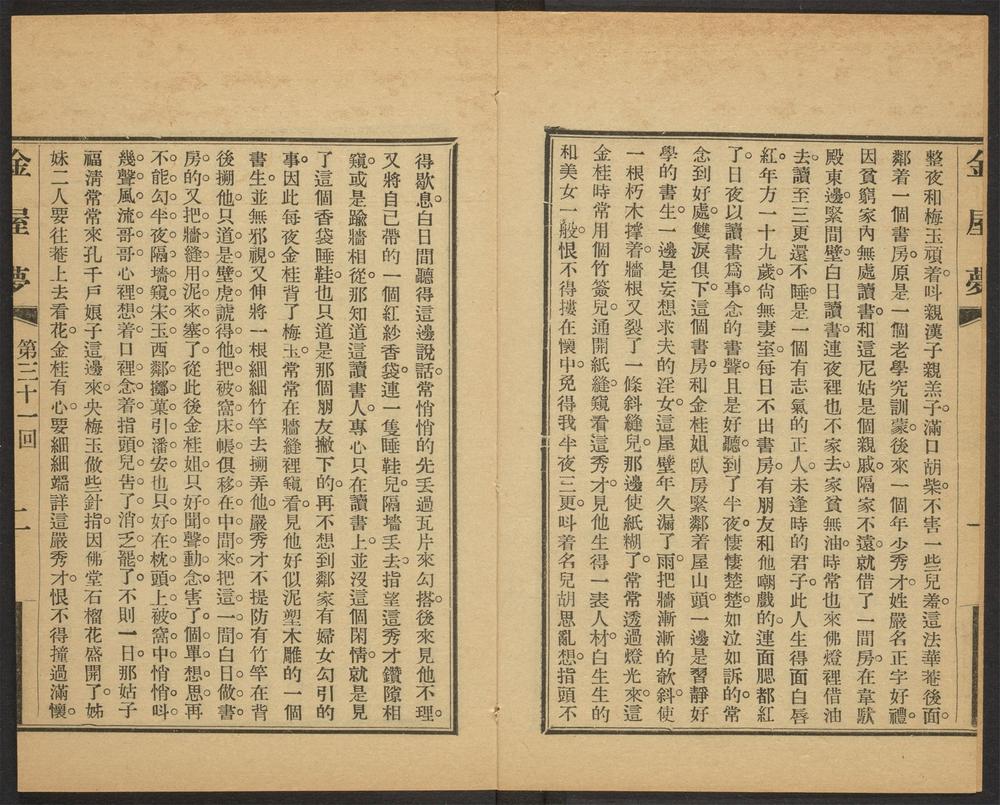 金屋夢
一
整夜和梅玉頑着呌親漢子親羔子滿口胡柴不害一些兒羞這法華菴後面。
鄰着一個書房原是一個老學究訓蒙後來一個年少秀才姓嚴名正字好禮。
因貧窮家內無處讀書和這尼姑是個親戚隔家不遠就借了一間房在韋馱
殿東邊緊間壁白日讀書連夜裡也不家去家貧無油時常也來佛燈裡借油
去讀至三更還不睡是一個有志氣的正人未逢時的君子此人生得面白唇
紅年方一十九歲尙無妻室每日不出書房有朋友和他嘲戲的連面腮都紅
了。日夜以讀書爲事念的書聲且是好聽到了半夜悽悽楚楚如泣如訴的常
念到好處雙淚俱下這個書房和金桂姐臥房緊鄰着屋山頭一邊是習靜好
學的書生一邊是妄想求夫的淫女這屋壁年久漏了雨把牆漸漸的欹斜使
一根朽木撑着牆根又裂了一條斜縫兒那邊使紙糊了常常透過燈光來。這
金桂時常用個竹簽兒通開紙縫窺看這秀才見他生得一表人材白生生的
和美女一般恨不得摟在懷中免得我半夜三更呌着名兒胡思亂想指頭不
得歇息。白日間聽得這邊說話常悄悄的先丟過瓦片來勾搭。後來見他不理。
又將自己帶的一個紅紗香袋連一隻睡鞋兒隔墻丟去指望這秀才鑽隙相
窺。或是踰牆相從那知道這讀書人專心只在讀書上並沒這個閑情就是見
了這個香袋睡鞋也只道是那個朋友撇下的。再不想到鄰家有婦女勾引的
事。因此每夜金桂背了梅玉。常常在牆縫裡窺看見他好似泥塑木雕的一個
書生。並無邪視又伸將一根細細竹竿去搠弄他。嚴秀才不提防有竹竿在背
後搠他只道是壁虎諕得他把被窩床帳俱移在中間來把這一間白日做書
房的又把牆縫用泥來塞了從此後金桂姐只好聞聲動念害了個單想思再
不能勾半夜隔墻窺宋玉西鄰擲菓引潘安也只好在枕頭上被窩中悄悄呌
幾聲風流哥哥心裡想着口裡念着指頭兒告了消乏罷了不則一日那姑子
福淸常常來孔千戶娘子這邊來央梅玉做些針指因佛堂石榴花盛開了。姊
妹二人要往菴上去看花。金桂有心。要細細端詳這嚴秀才。恨不得撞過滿懷。
金屋夢
第三十一回
二